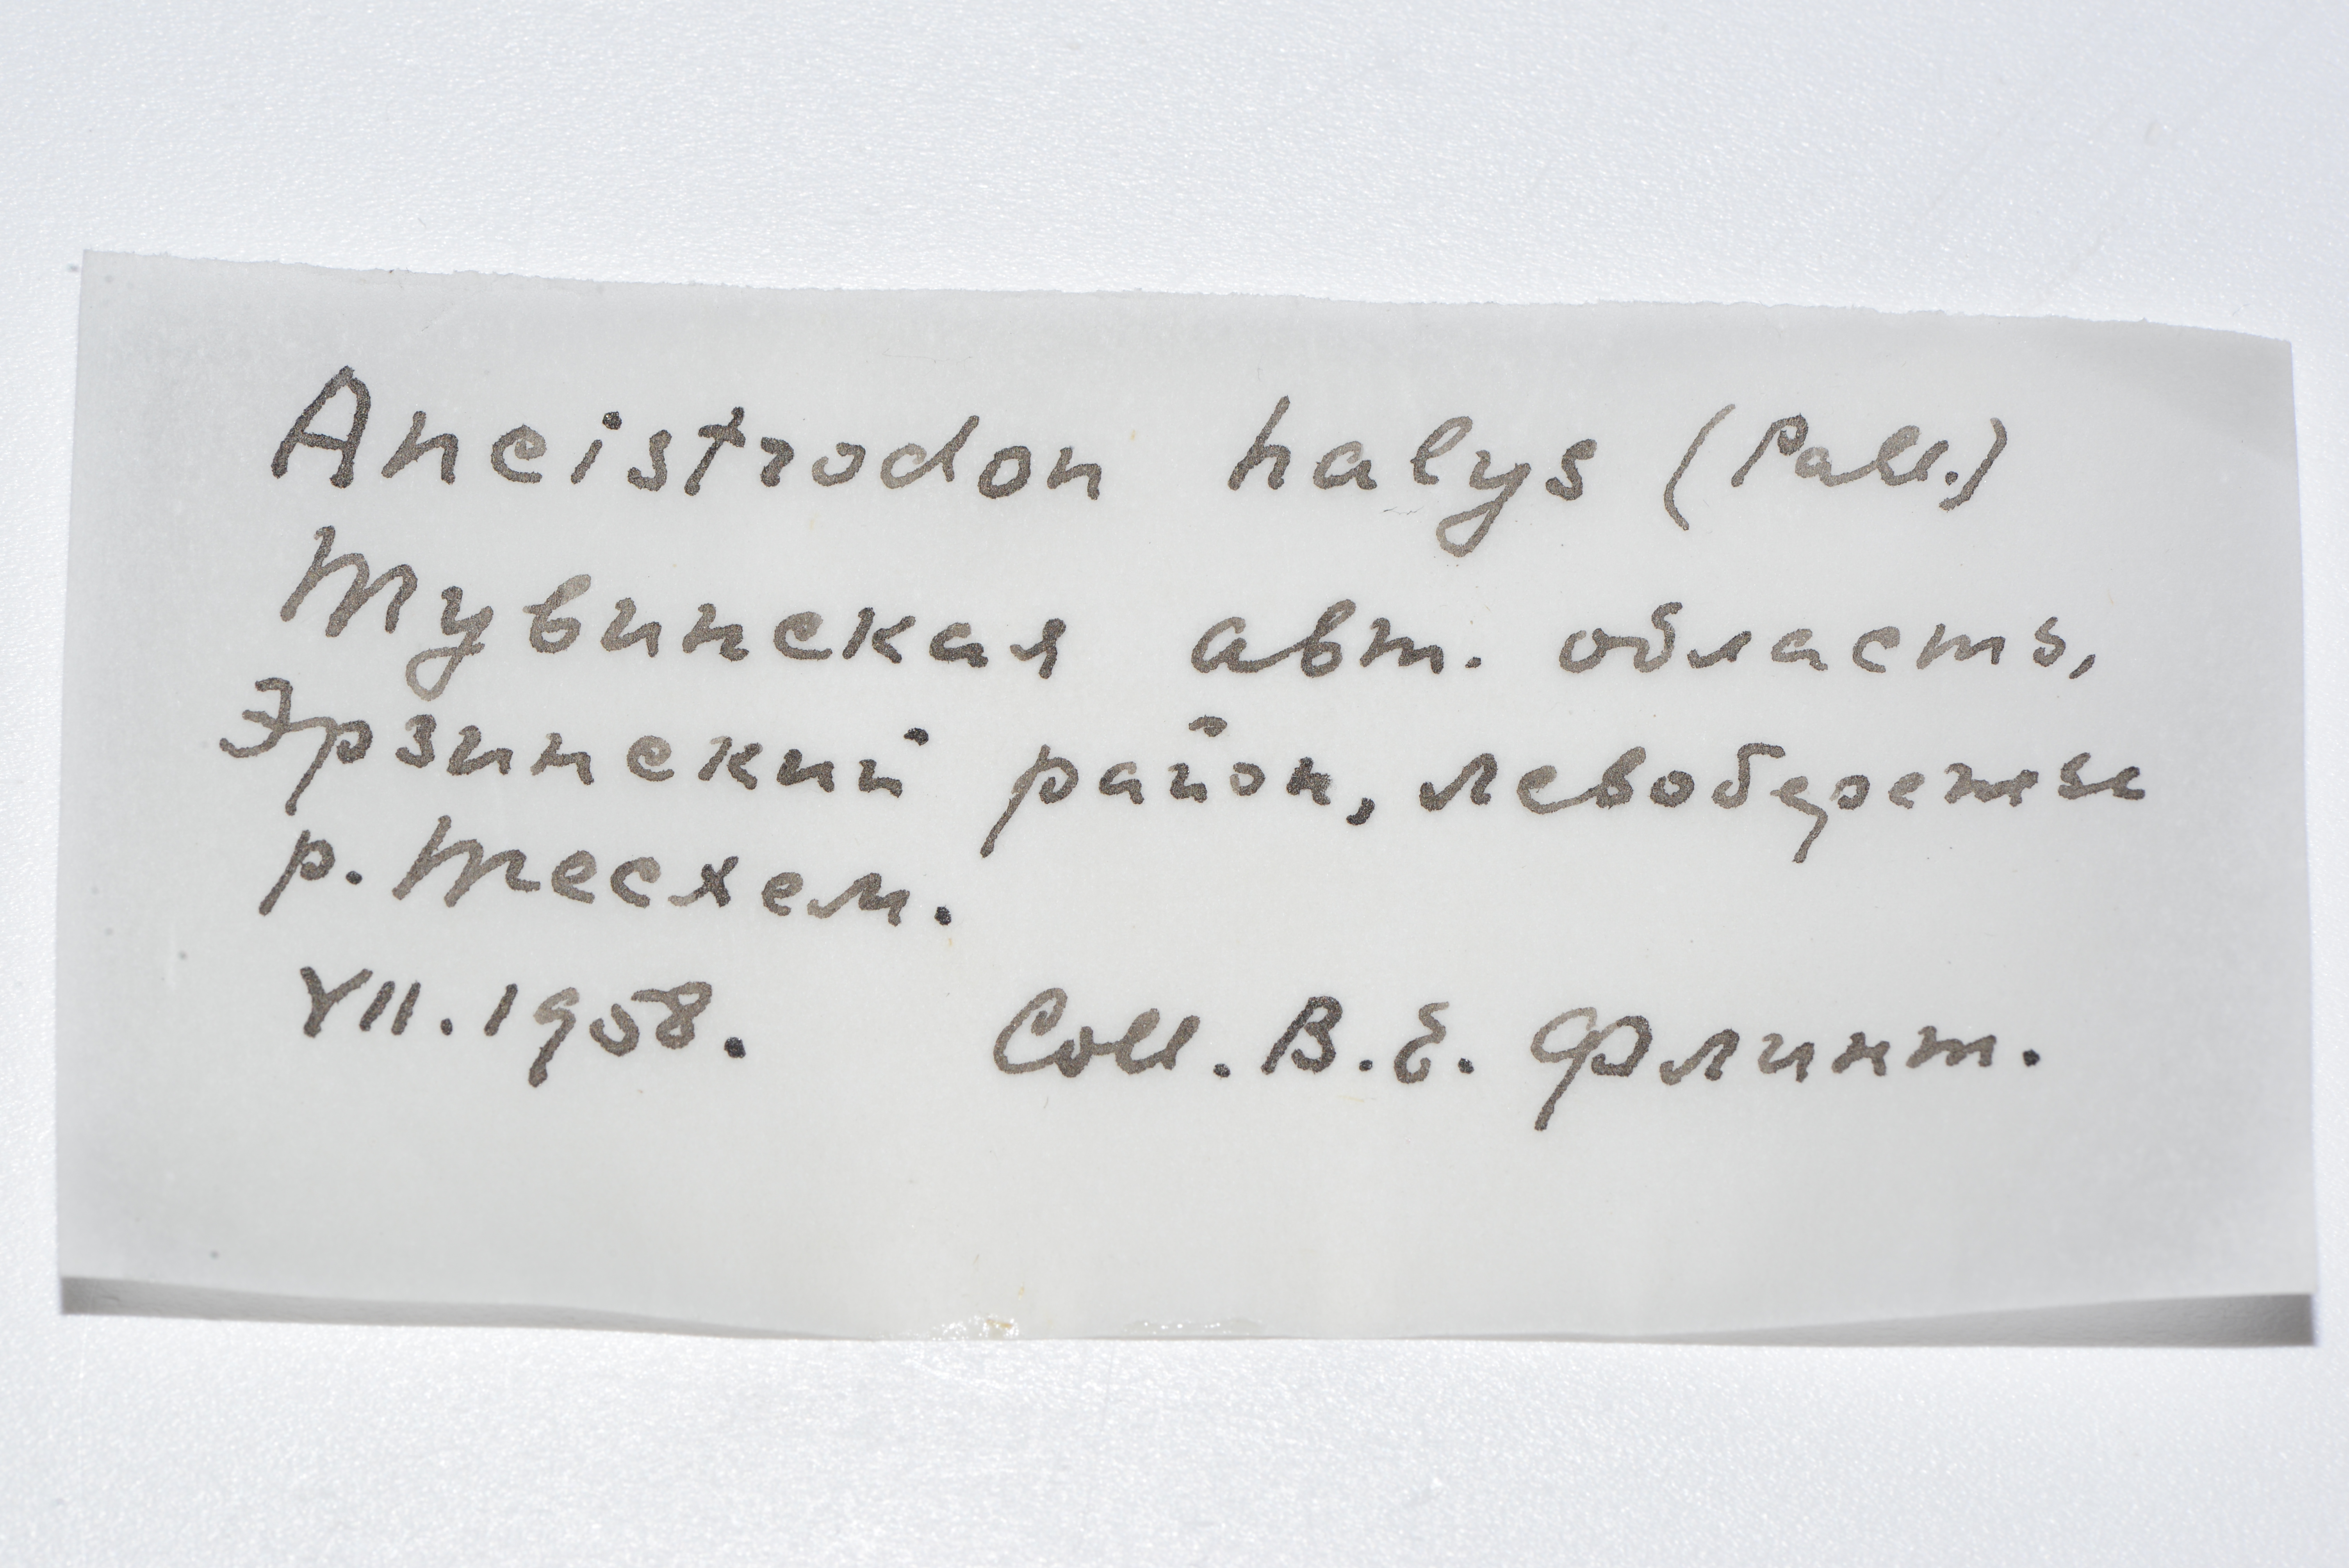 Ancistrodon halys (Pall.)
Тувинская авт. область,
Эрзинский район, левобережье
р. Тесхем.
VII. 1958. Coll. В. Е. Флинт.